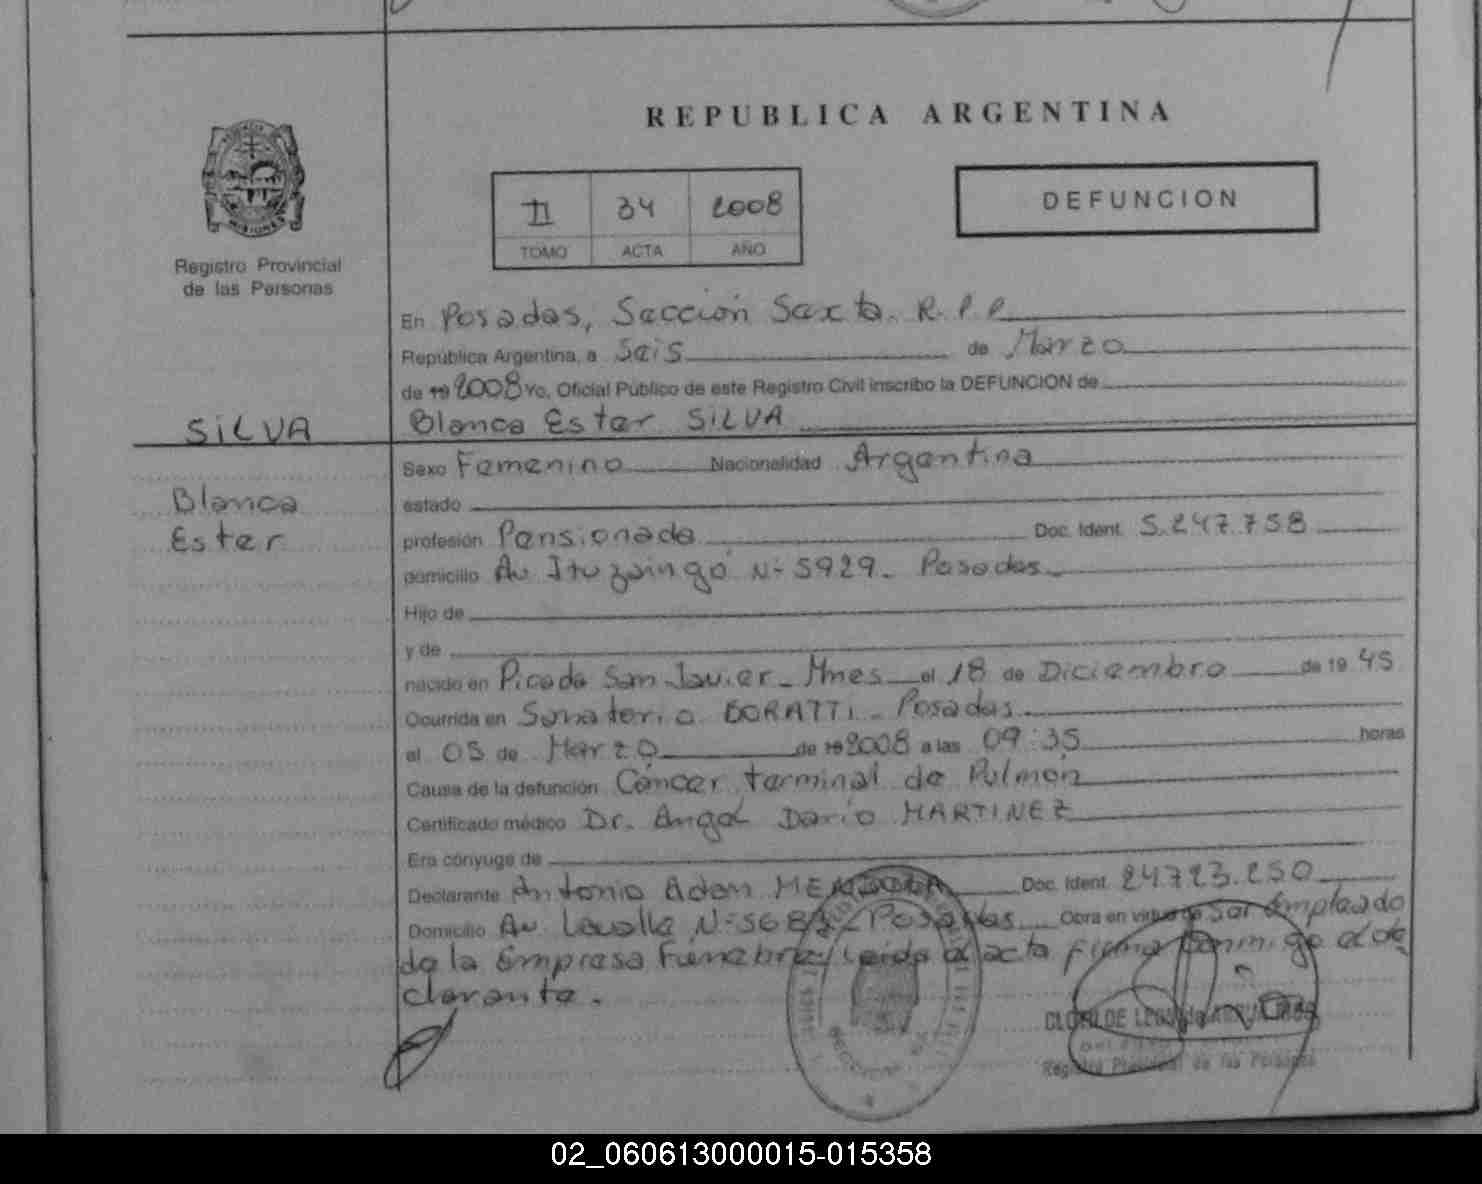 REPUBLICA ARGENTINA
II 34 2008
TOMO ACTA AÑO
DEFUNCION
MISIONES
Registro Provincial
de las Personas
En Posadas, Sección Sexta. R.P.P.
República Argentina, a Seis de Marzo
de 19 2008 Yo, Oficial Público de este Registro Civil inscribo la DEFUNCION de
SILVA
Blanca Ester SILVA
Blanca
Ester
Sexo Femenino Nacionalidad Argentina
estado
profesión Pensionada Doc. Ident. 5.247.758
domicilio Av Ituzaingó Nº 5929- Posadas-
Hijo de
y de
nacido en Picada San Javier- Mnes el 18 de Diciembre de 19 45
Ocurrida en Sanatorio BORATTI- Posadas
el 05 de Marzo de 19 2008 a las 09:35 horas
Causa de la defunción Cáncer terminal de Pulmón
Certificado médico Dr. Angel Darío MARTINEZ
Era cónyuge de
Declarante Antonio Adam Doc. Ident. 24723.250
Domicilio Av Lavalle Posadas Obra en virtud de Ser Empleado
de la Empresa Funebre. Leída el acta firma conmigo el de
clarante.
Registro Provincial de las Personas
02_060613000015-015358